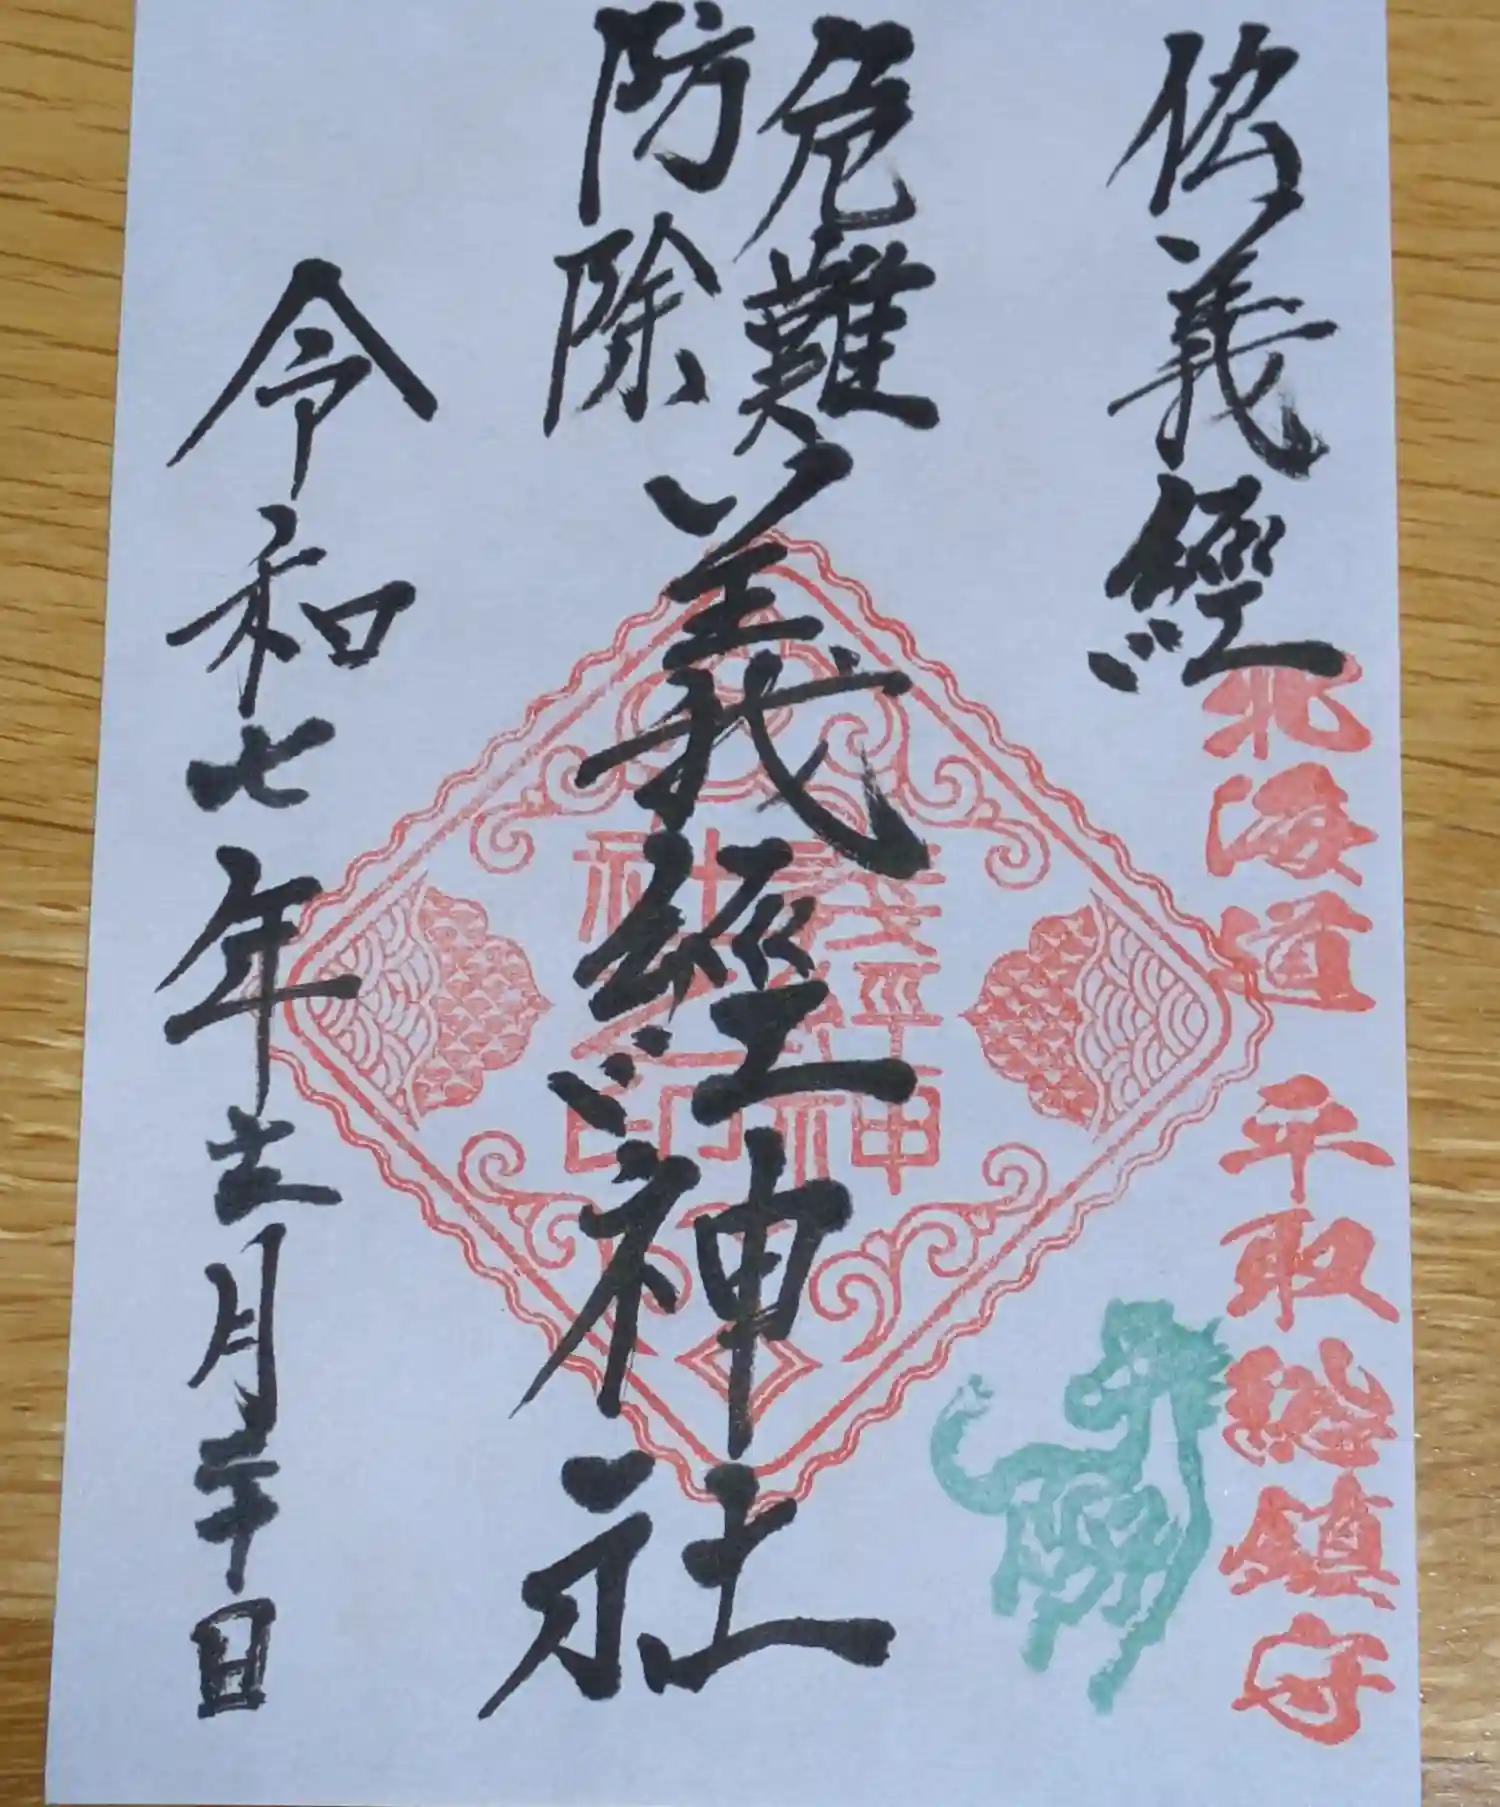 義經
北海道 平取総鎮守
危難
防除
義經神社
義經神
社之印
令和七年十一月二十日